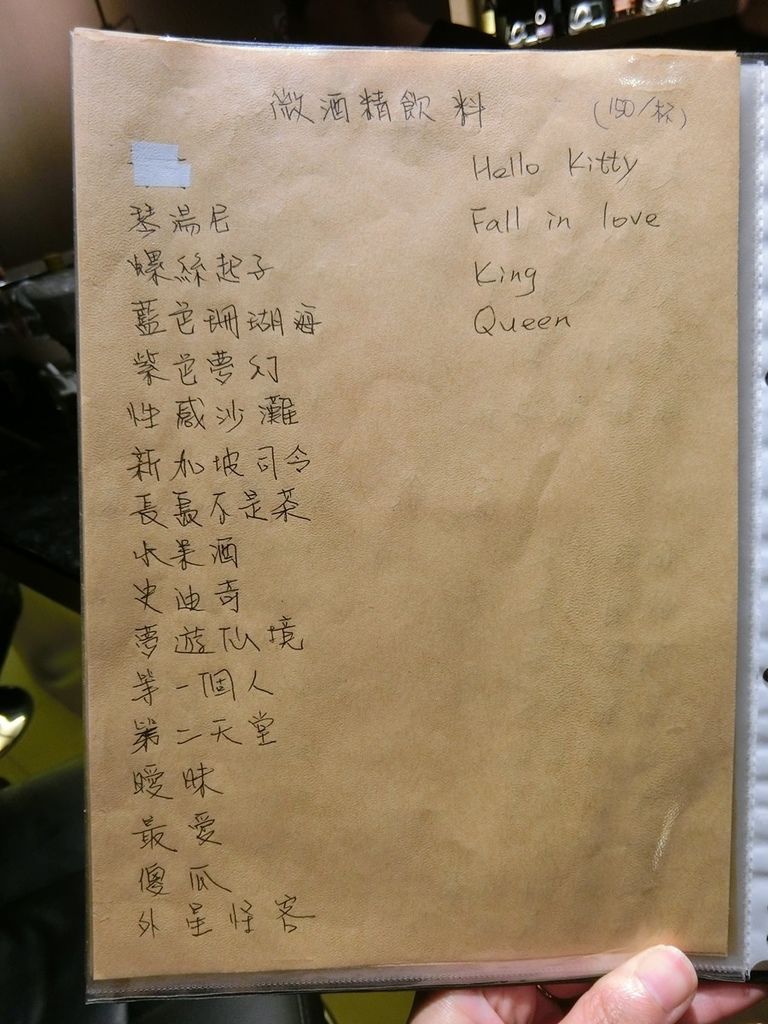 微酒精飲料 (150/杯)
琴湯尼
螺絲起子
藍色珊瑚海
紫色夢幻
性感沙灘
新加坡司令
長島不是茶
水果酒
史迪奇
夢遊仙境
等一個人
第二天堂
曖昧
最愛
傻瓜
外星怪客
Hello Kitty
Fall in love
King
Queen